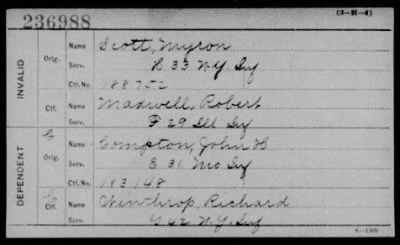 (3-H-4)
236988
INVALID
Orig.
Name Scott, Myron
Serv. K 33 N.Y. Inf
Ctf. No. 188752
Ctf.
Name Maxwell, Robert
Serv. F 29 Ill Inf
DEPENDENT
Orig.
Name Compton, John H
Serv. E 31 Mo Inf
Ctf. No. 183148
Ctf.
Name Winthrop, Richard
Serv. G 42 N.Y. Inf